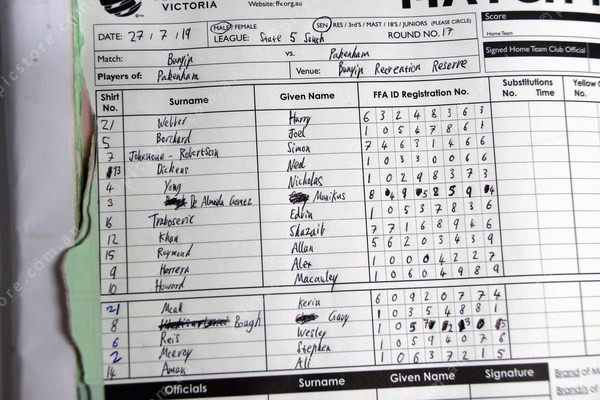 VICTORIA
Website: ffv.org.au
MALE / FEMALE SEN / RES / 3rd's / MAST / 18'S / JUNIORS (PLEASE CIRCLE)
DATE: 27 / 7 / 19 LEAGUE: State 5 South ROUND NO. 17
Score
Home Team
Match: Bunyip vs. Pakenham
Signed Home Team Club Official
Players of: Pakenham Venue: Bunyip Recreation Reserve
Shirt No. Surname Given Name FFA ID Registration No. Substitutions No. Time Yellow
21 Webber Harry 6 3 2 4 8 3 6 3
5 Borchard Joel 1 0 5 4 7 8 6 1
7 Johnstone - Robertson Simon 7 4 6 3 1 4 6 6
13 Dickens Ned 1 0 3 3 0 0 6 6
4 Yong Nickolas 1 0 2 9 8 3 7 3
3 De Almeida Gomez Monikus
16 Edvin 1 0 5 3 7 8 3 6
12 Khan Shazaib 7 7 1 6 8 9 4 6
15 Raymond Allan 5 6 2 0 3 4 3 9
9 Herrera Alex 1 0 0 0 4 2 2 7
10 Howard Macauley 1 0 6 0 4 9 8 9
21 Neal Kevin 6 0 9 2 0 7 7 4
8 Bough Gary 1 0 3 5 4 8 8 1
6 Reis Wesley
2 Stephen 1 0 5 9 4 0 6 7
14 Aman Ali 1 0 6 3 7 2 1 5
Officials Surname Given Name Signature Brand of M
Brand of